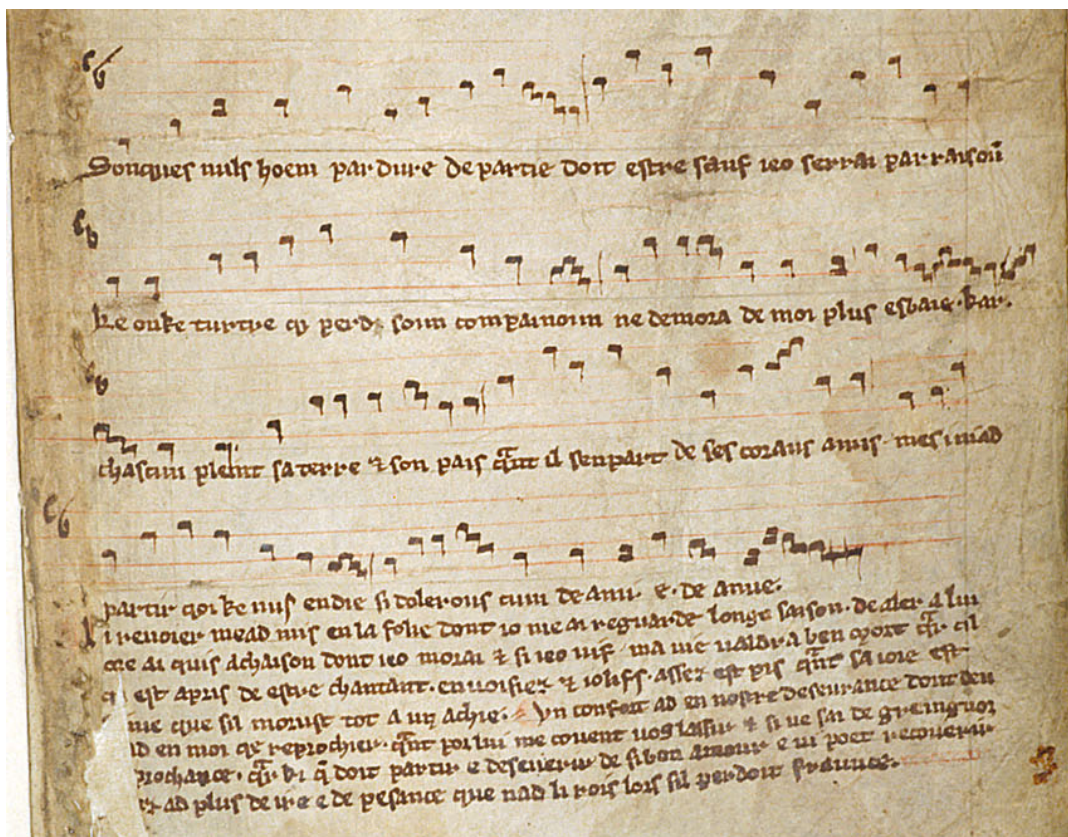 Sonques nuls hoem par dure departie doit estre sauf ieo serrai par raisoun
ke onke turtre qi perd soun compainoun ne demora de moi plus esbaie. kar.
chascun pleint sa terre & son pais qant il senpart de ses coraus amis. mes
partir qoi ke nus en die si dolerous cum de ami. e. de amie.
revoier mead mis en la folie dont io me ai reguarde longe saison. de aler a lui
ore ai quis achaison dont ieo morai & si ieo vif ma vie valdra ben mort qar cil
qi est apris de estre chantant. envoisiez & iolifs. assez est pis qant sa ioie est
que sil morust tot a un achie. Un confort ad en nostre desevrance dont deu
en moi reprochier. qant por lui me covent vos laissir & si ne sai de greingnor
qar ki doit partir e deseverir de si bon amour e ni poet recoverir
ad plus de ire e de pesance que nad li rois lois sil perdoit fraunce.